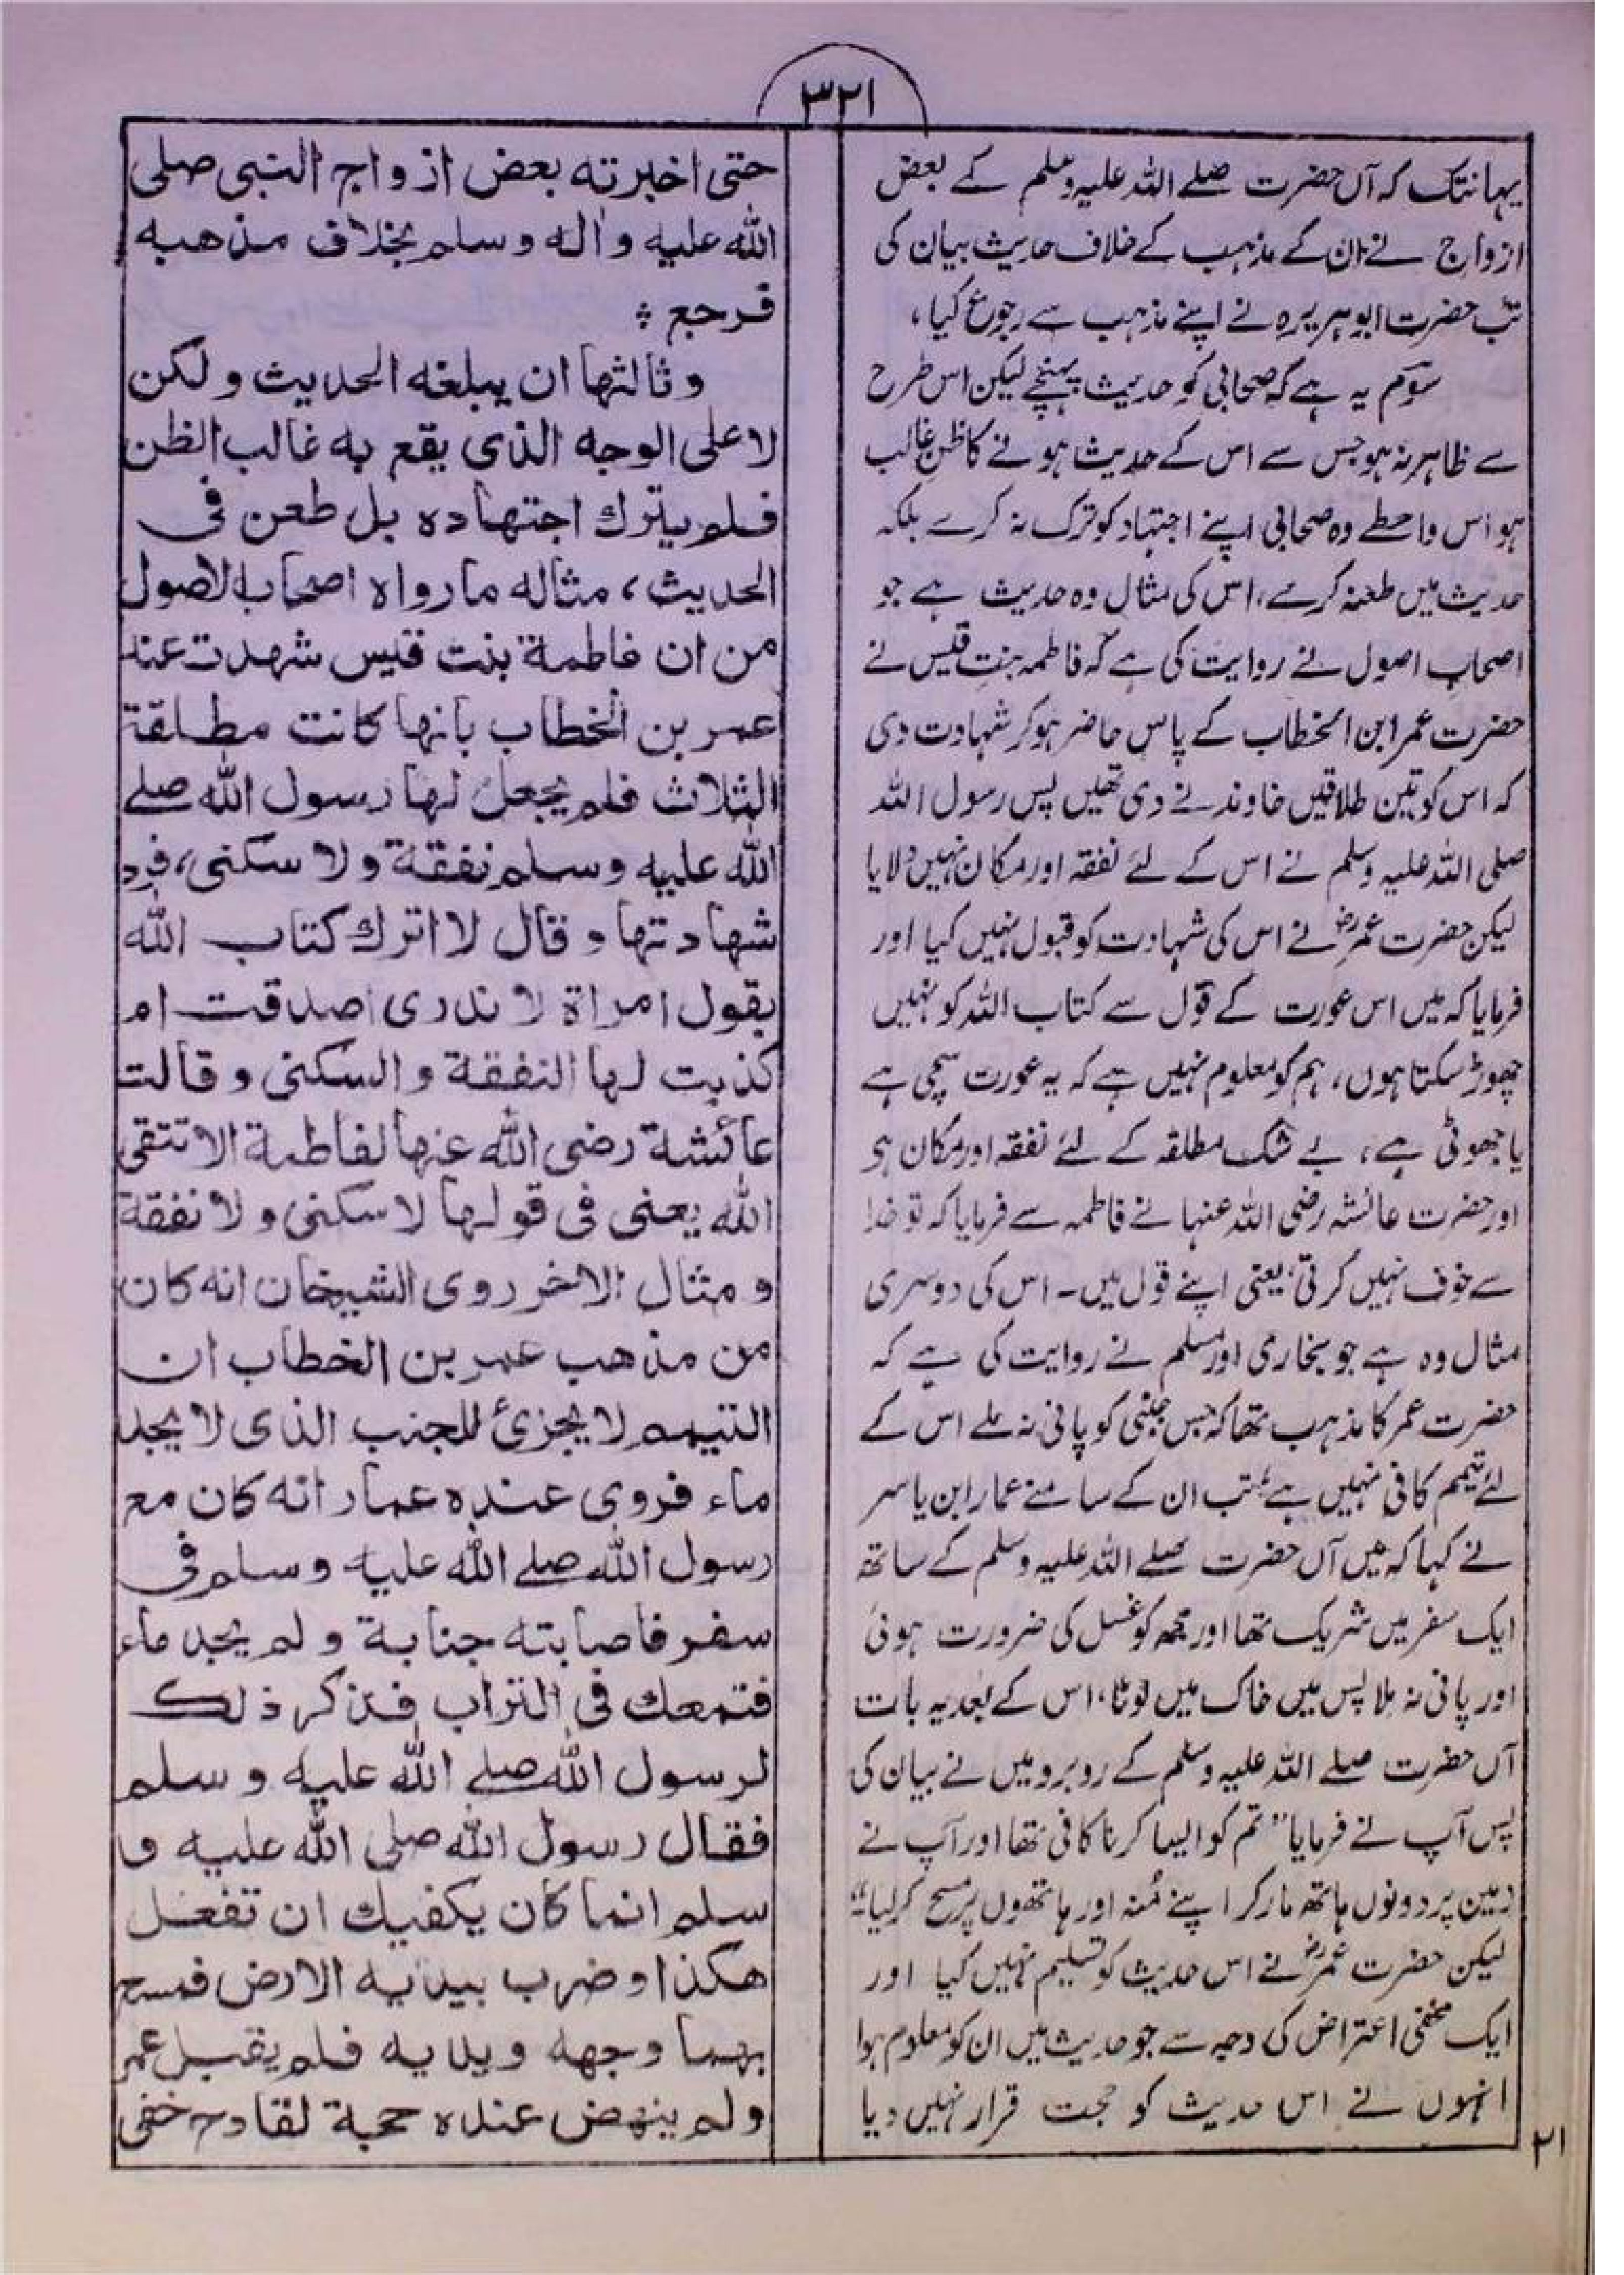 ۳۲۱
یہانتک کہ آں حضرت صلے اللہ علیہ وسلم کے بعض
ازواج نے ان کے مذہب کے خلاف حدیث بیان کی
تب حضرت ابوہریرہ نے اپنے مذہب سے رجوع کیا،
سوم یہ ہے کہ صحابی کو حدیث پہنچے لیکن اس طرح
سے ظاہر نہ ہو جس سے اس کے حدیث ہونے کا ظن غالب
ہو اس واسطے وہ صحابی اپنے اجتہاد کو ترک نہ کرے بلکہ
حدیث میں طعنہ کرے، اس کی مثال وہ حدیث ہے جو
اصحاب اصول نے روایت کی ہے کہ فاطمہ بنت قیس نے
حضرت عمر ابن الخطاب کے پاس حاضر ہوکر شہادت دی
کہ اس کو تین طلاقیں خاوند نے دی تھیں پس رسول اللہ
صلی اللہ علیہ وسلم نے اس کے لئے نفقہ اور مکان نہیں دلایا
لیکن حضرت عمرؓ نے اس کی شہادت کو قبول نہیں کیا اور
فرمایا کہ میں اس عورت کے قول سے کتاب اللہ کو نہیں
چھوڑ سکتا ہوں، ہم کو معلوم نہیں ہے کہ یہ عورت سچی ہے
یا جھوٹی ہے، بے شک مطلقہ کے لئے نفقہ اور مکان ہی
اور حضرت عائشہ رضی اللہ عنہا نے فاطمہ سے فرمایا کہ تو خدا
سے خوف نہیں کرتی، یعنی اپنے قول میں۔ اس کی دوسری
مثال وہ ہے جو بخاری اور مسلم نے روایت کی ہے کہ
حضرت عمر کا مذہب تھا کہ جس جنبی کو پانی نہ ملے اس کے
لئے تیمم کافی نہیں ہے، تب ان کے سامنے عمار ابن یاسر
نے کہا کہ میں آں حضرت صلے اللہ علیہ وسلم کے ساتھ
ایک سفر میں شریک تھا اور مجھ کو غسل کی ضرورت ہوئی
اور پانی نہ ملا پس میں خاک میں لوٹا، اس کے بعد یہ بات
آں حضرت صلے اللہ علیہ وسلم کے روبرو میں نے بیان کی
پس آپ نے فرمایا "تم کو ایسا کرنا کافی تھا اور آپ نے
زمین پر دونوں ہاتھ مار کر اپنے مُنہ اور ہاتھوں پر مسح کر لیا"
لیکن حضرت عمرؓ نے اس حدیث کو تسلیم نہیں کیا اور
ایک مخفی اعتراض کی وجہ سے جو حدیث میں ان کو معلوم ہوا
انہوں نے اس حدیث کو حجت قرار نہیں دیا
حتى اخبرته بعض ازواج النبى صلى
الله عليه واٰله وسلم بخلاف مذهبه
فرجع ؞
وثالثها ان يبلغه الحديث ولكن
لا على الوجه الذى يقع به غالب الظن
فلم يترك اجتهاده بل طعن فى
الحديث، مثاله مارواه اصحاب الاصول
من ان فاطمة بنت قيس شهدت عند
عمر بن الخطاب بانها كانت مطلقة
الثلاث فلم يجعل لها رسول الله صلے
الله عليه وسلم نفقة ولا سكنى، فرد
شهادتها وقال لا اترك كتاب الله
بقول امراة لا ندرى اصدقت ام
كذبت لها النفقة والسكنى وقالت
عائشة رضى الله عنها لفاطمة الا تتقى
الله يعنى فى قولها لا سكنى ولا نفقة
ومثال الاخر روى الشيخان انه كان
من مذهب عمر بن الخطاب ان
التيمم لا يجزئ للجنب الذى لا يجد
ماء فروى عنده عمار انه كان مع
رسول الله صلے الله عليه وسلم فى
سفر فاصابته جنابة ولم يجد ماء
فتمعك فى التراب فذكر ذلك
لرسول الله صلے الله عليه وسلم
فقال رسول الله صلى الله عليه و
سلم انما كان يكفيك ان تفعل
هكذا وضرب بيديه الارض فمسح
بهما وجهه ويديه فلم يقبل عمر
ولم ينهض عنده حجة لقادح خفى
۲۱